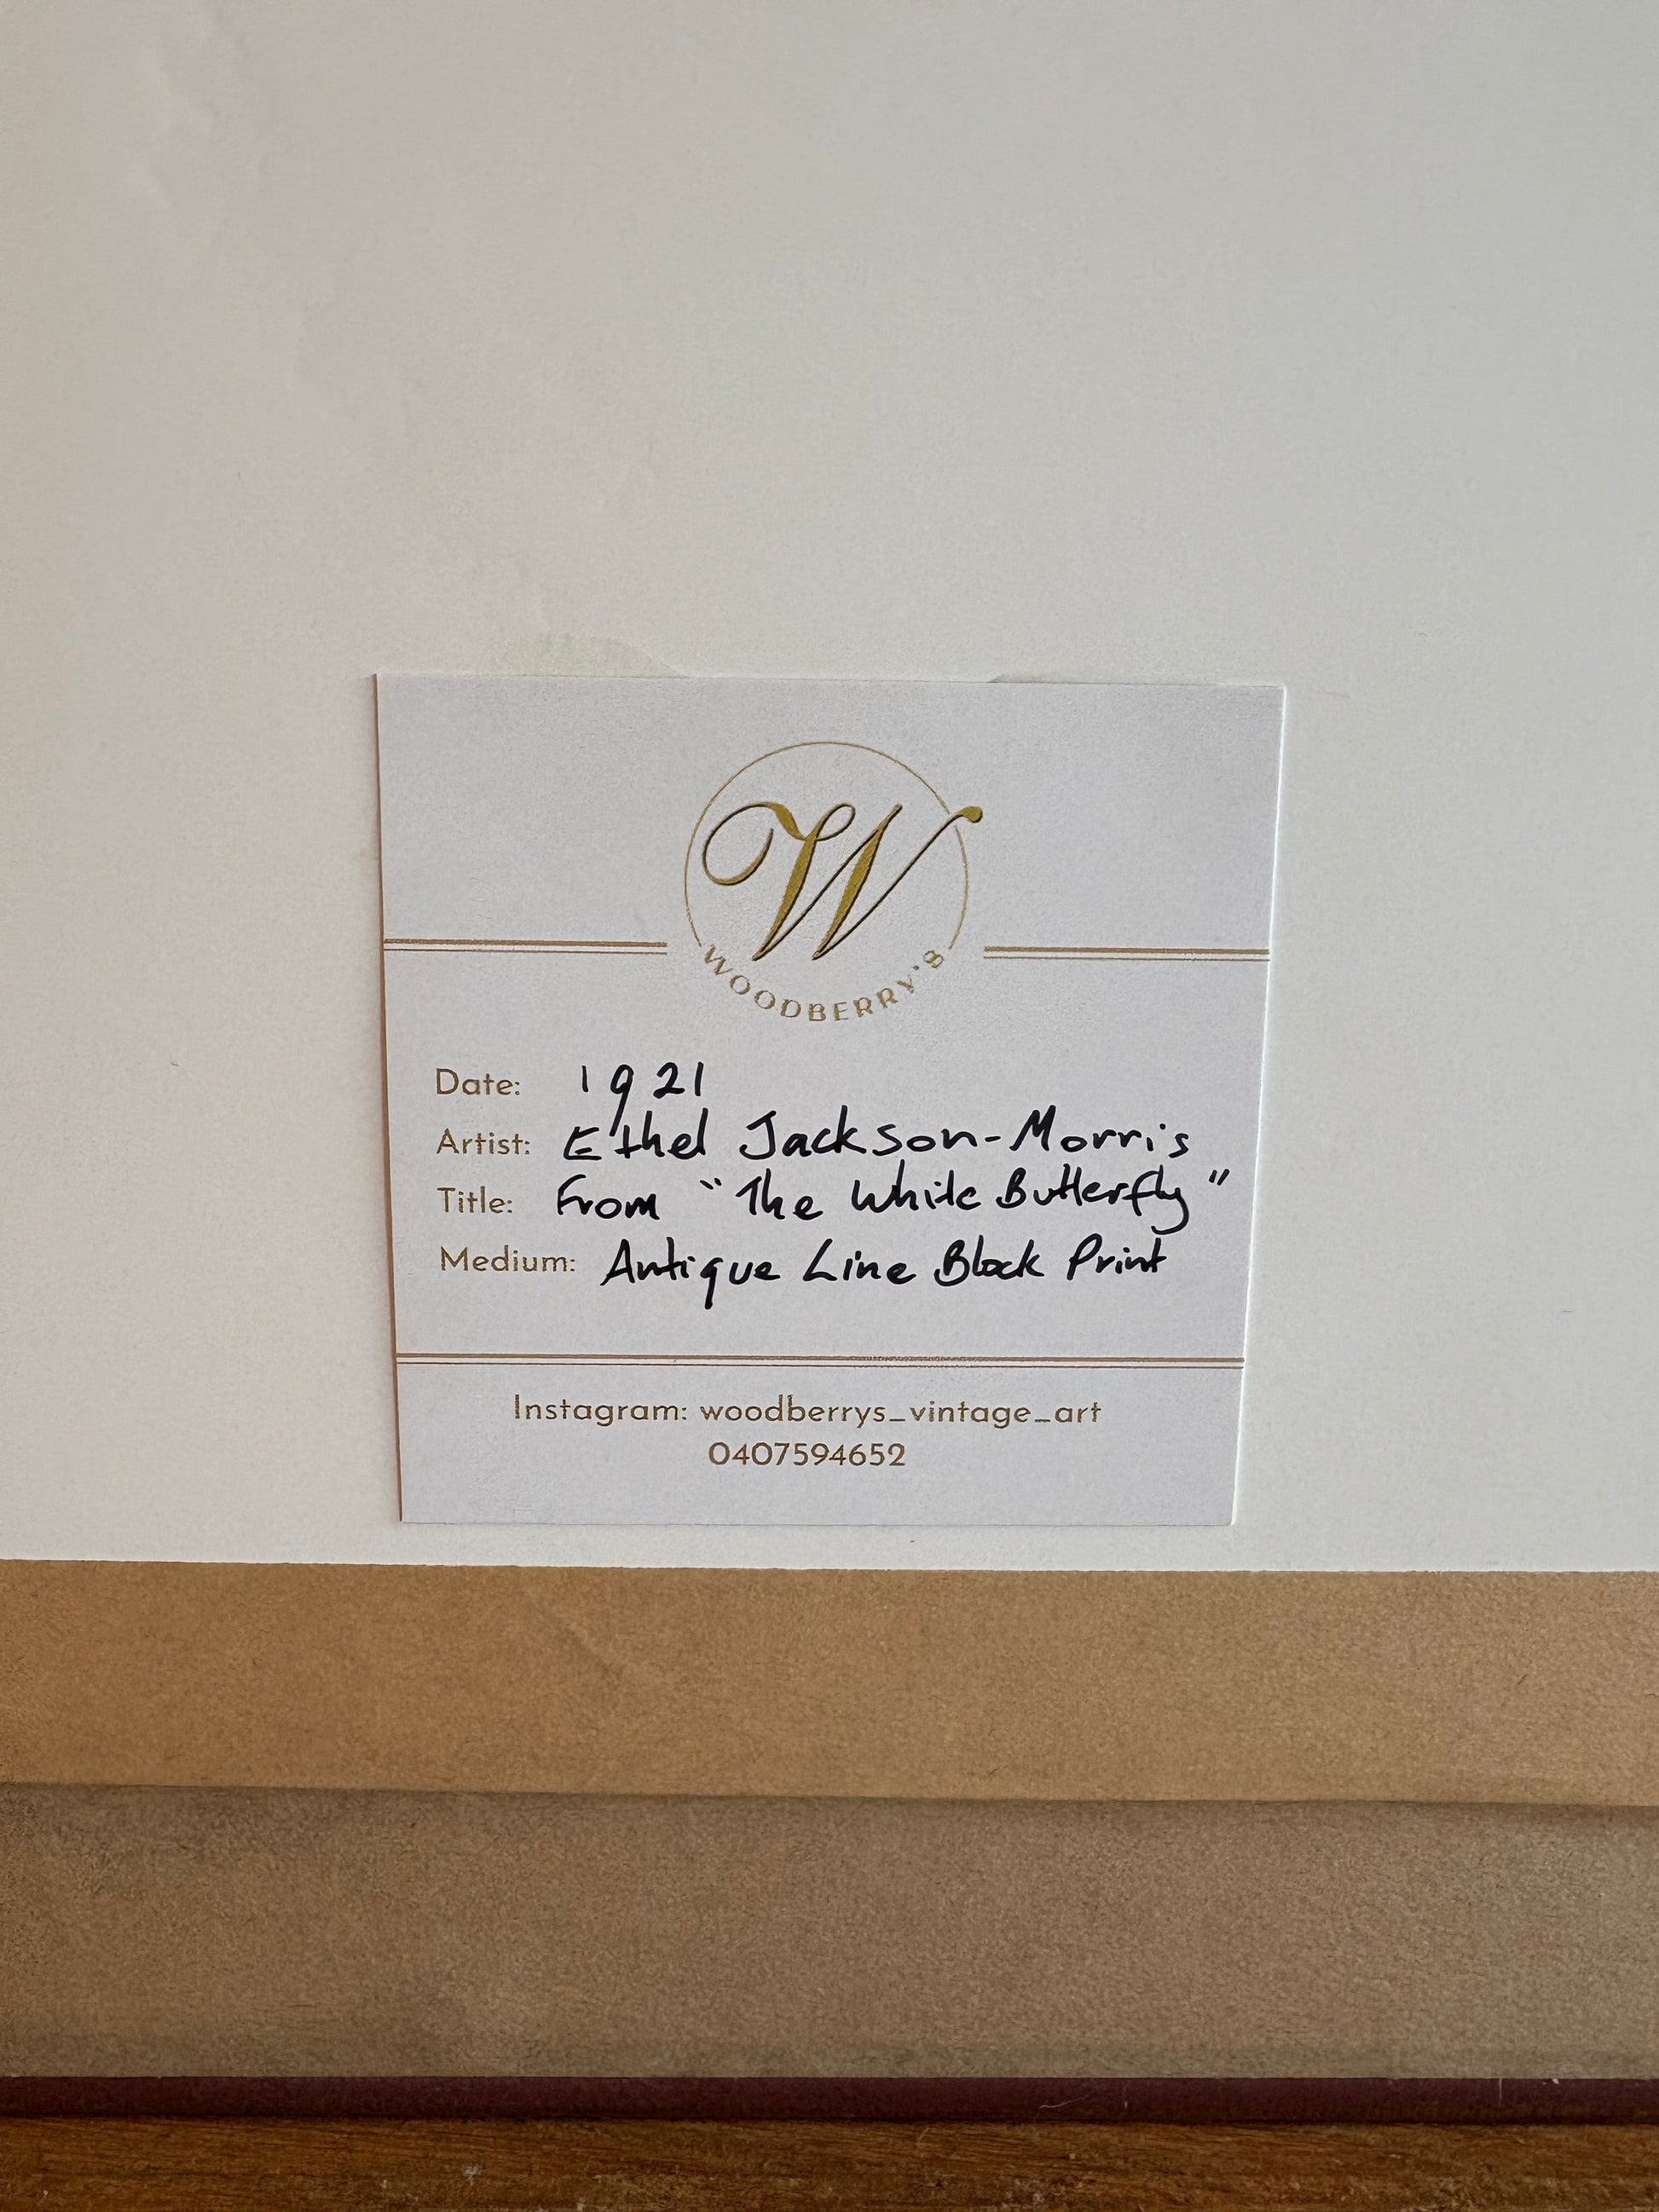 W
WOODBERRY'S
Date: 1921
Artist: Ethel Jackson-Morris
Title: From "The White Butterfly"
Medium: Antique Line Block Print
Instagram: woodberrys_vintage_art
0407594652